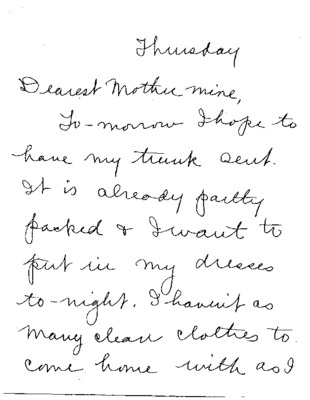 Thursday
Dearest Mother mine,
To-morrow I hope to
have my trunk sent.
It is already partly
packed & I want to
put in my dresses
to-night. I haven't as
many clean clothes to
come home with as I